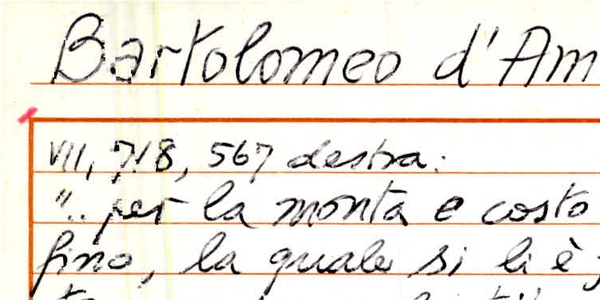 Bartolomeo d'Am
VII, 718, 567 destra:
".. per la monta e costo
fino, la quale si li è